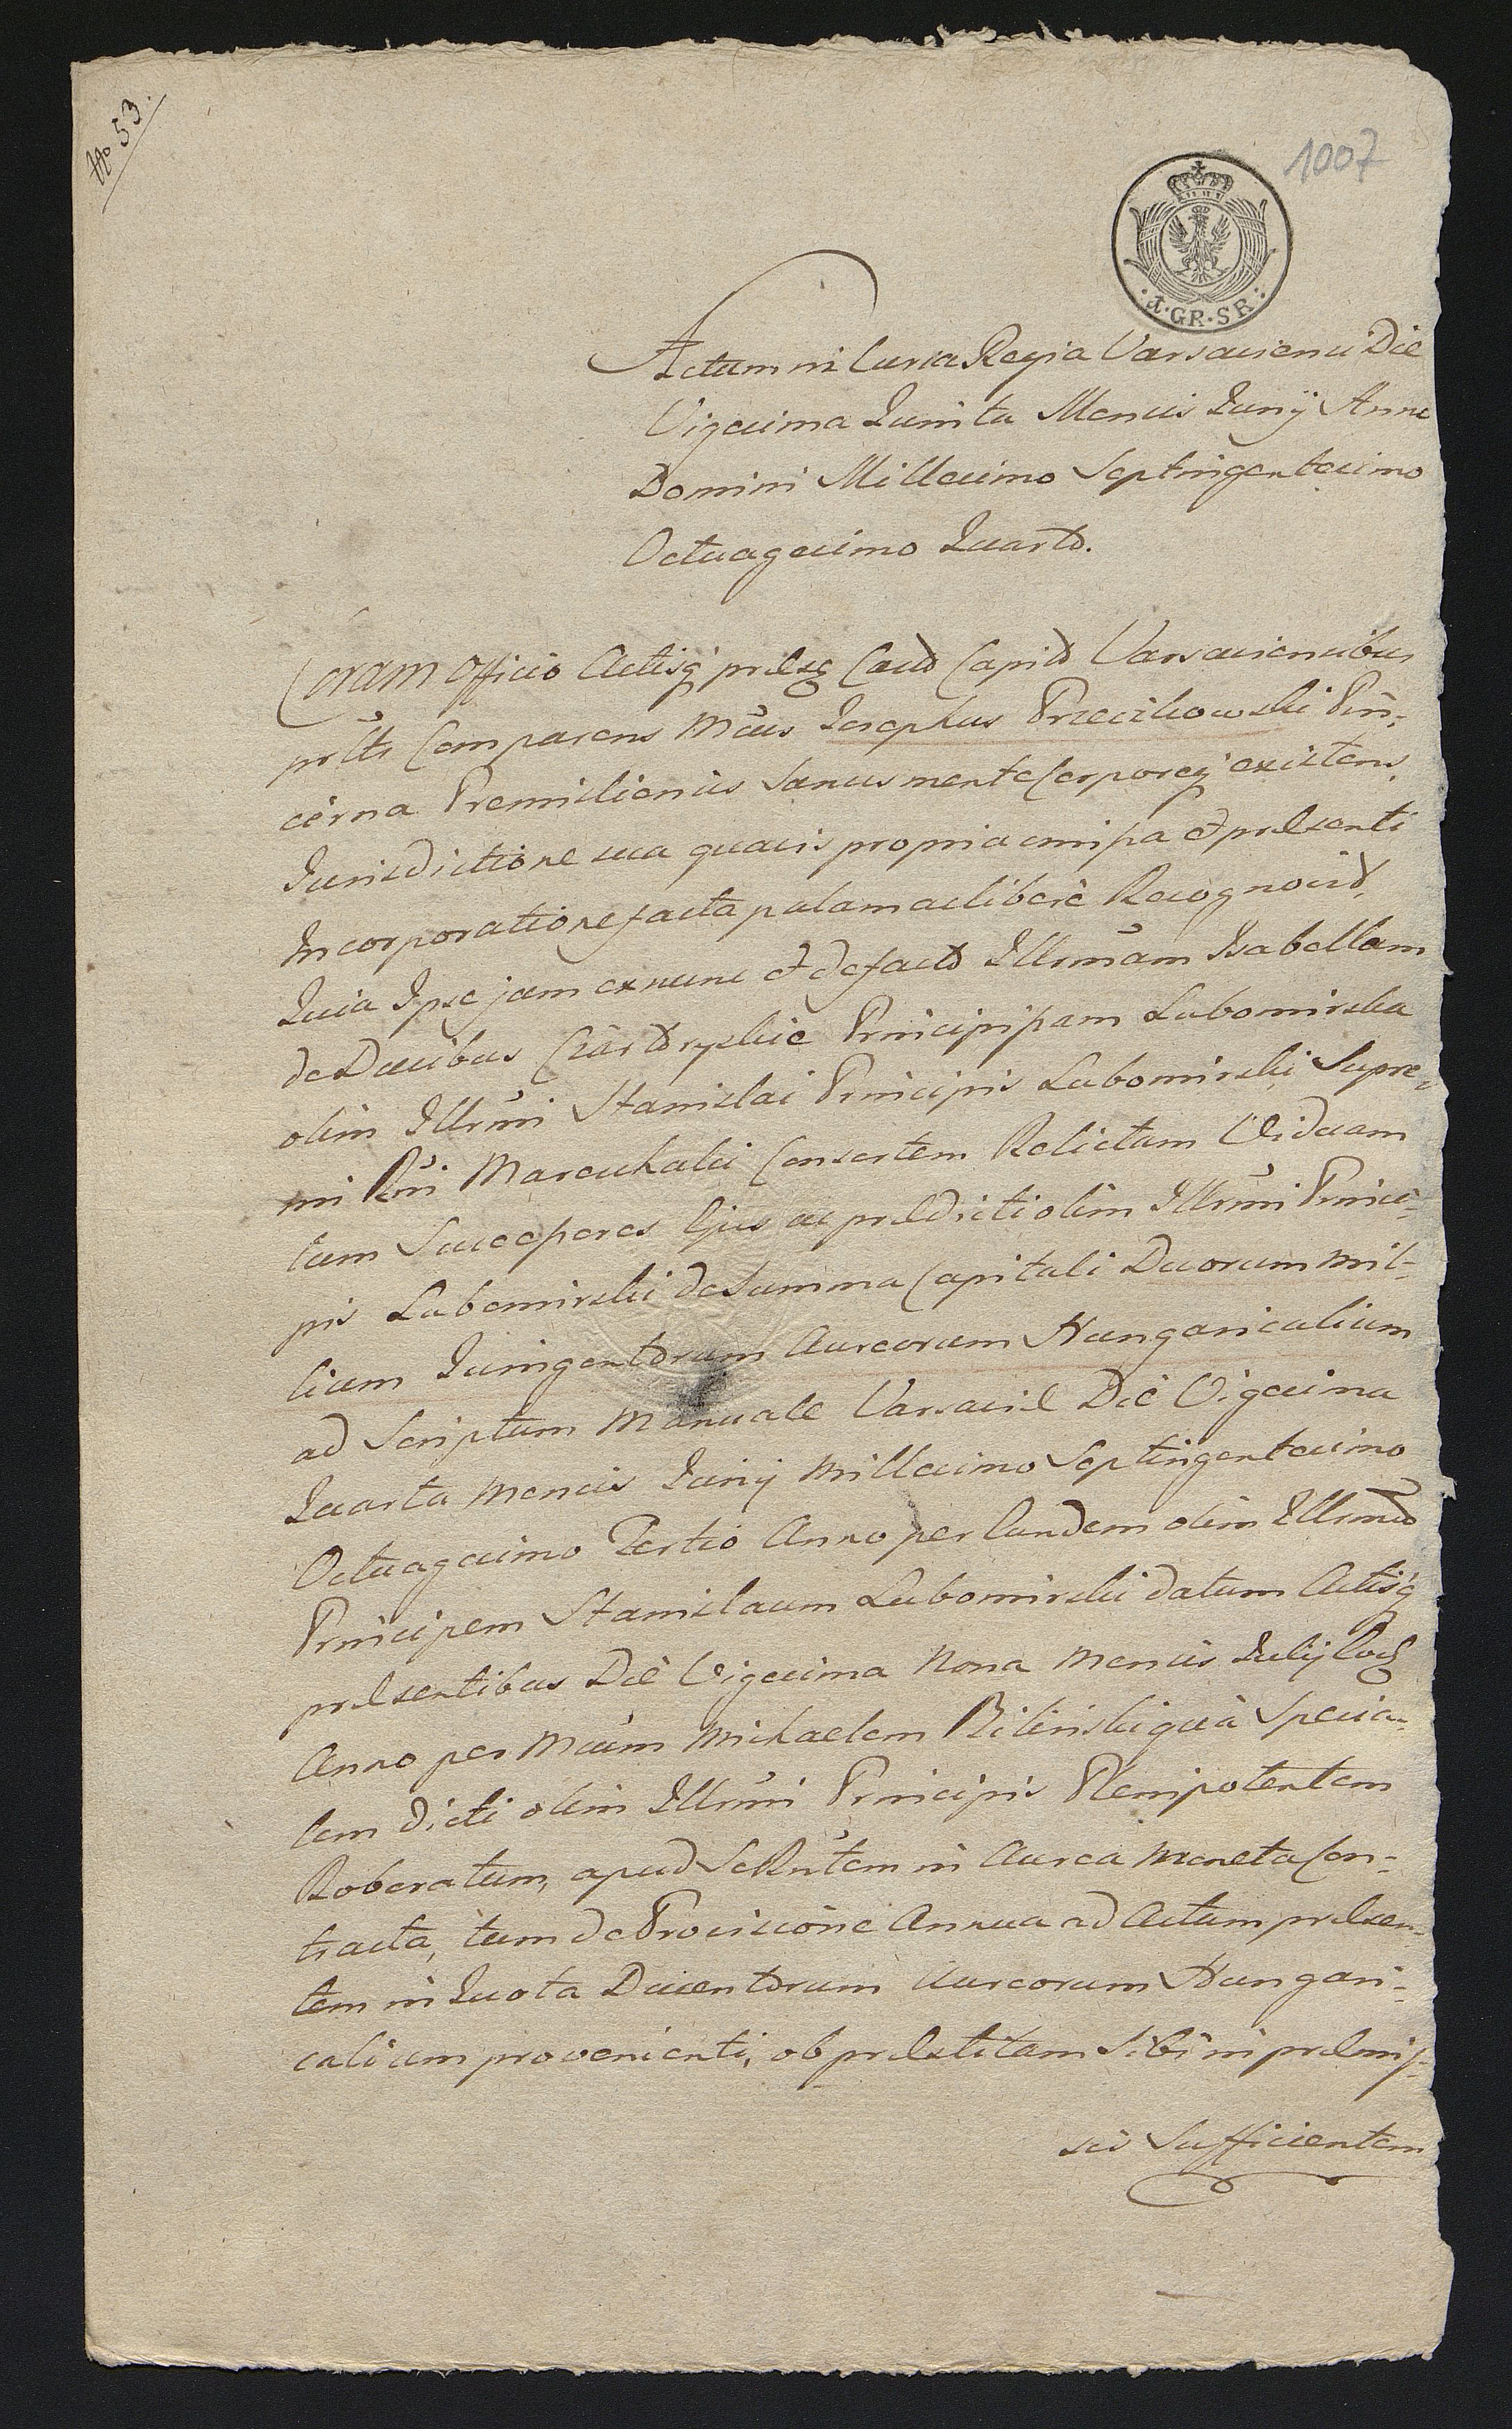 No 53.
1007
4.GR.SR.
Actum in Curia Regia Varsaviensi Die
Vigesima Quinta Mensis Junij Anno
Domini Millesimo Septingentesimo
Octuagesimo Quarto.
Coram Officio Actisq præsq Castr Capit Varsaviensibus
prsltr Comparens Mcus Josephus Przeciszowski Pin¬
cerna Premisliensis Sanus mente Corporeq existens
Jurisdictione sua quavis propria omissa et præsenti
Incorporatione facta palam ac libere Recognovit
Quia Ipse jam ex nunc et de facto Illrmam Isabellam
de Ducibus Czartoryskie Principissam Lubomirska
olim Illrmi Stanislai Principis Lubomirski Supre¬
mi Rni Mareschalci Consortem Relictam Viduam
tum Successores Ejus ac prædicti olim Illrmi Princi¬
pis Lubomirski de Summa Capitali Duorum mil¬
lium Quingentorum Aureorum Hungaricalium
ad Scriptum Manuale Varsaviæ Die Vigesima
Quarta Mensis Junij Millesimo Septingentesimo
Octuagesimo Tertio Anno per Eundem olim Illrmum
Principem Stanislaum Lubomirski datum Actisq
præsentibus Die Vigesima Nona Mensis Julij Eod
Anno per Mcum Michaelem Biliński quà Specia¬
lem dicti olim Illrmi Principis Plenipotentem
Roboratum, apud Se Rntem in Aurea Moneta Con¬
tracta, tum de Provisione Annua ad Actum præsen¬
tem in Quota Ducentorum Aureorum Hungari¬
calium provenienti, ob præstitam Sibi in præmis¬
sis Sufficientem